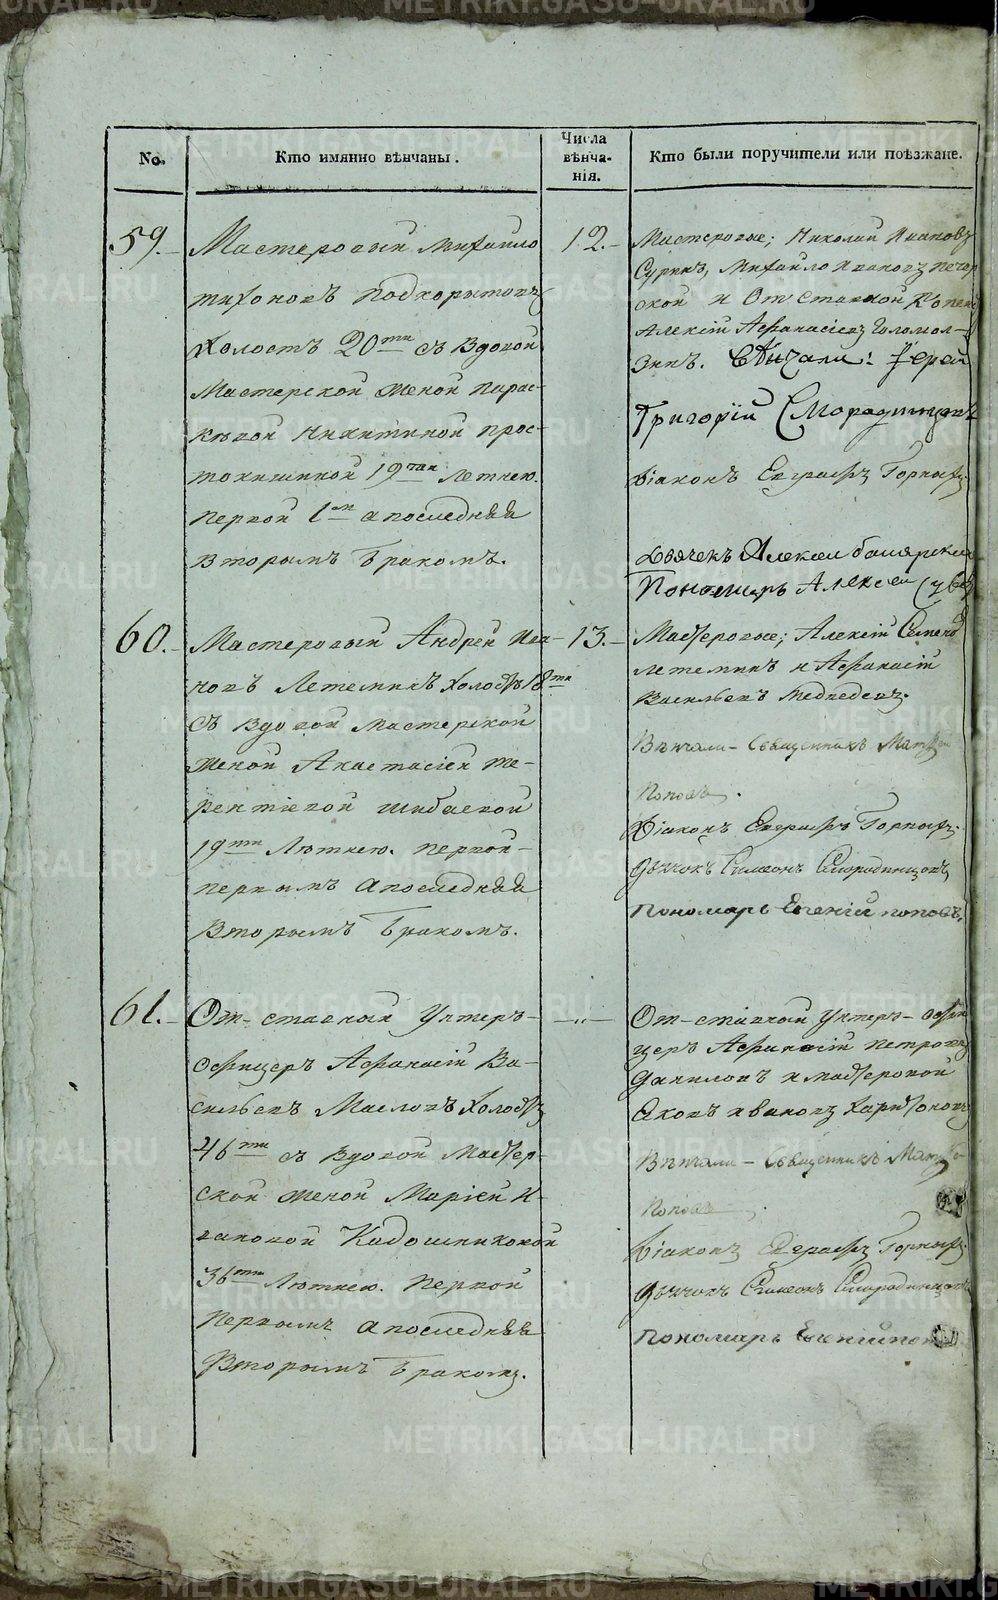 METRIKI.GASO-URAL.RU
No.
Кто имянно вѣнчаны.
Числа
вѣнча-
нія.
Кто были поручители или поѣзжане.
59.
Мастеровый Михайло
тихоновъ Подкорытовъ
Холостъ 20ти съ Вдовой
Мастерской женой Парас-
кѣвой Никитиной Прос-
токишиной 19ти Летнею.
Первой 1м апоследняя
Вторымъ Бракомъ.
12.
Мастеровые; Николай Ивановъ
Суринъ, Михайло Ивановъ Печер
ской и Отставной
Алексѣй Афанасіевъ Голомол-
зинъ. Вѣнчали: Іерей
Григорій Смородинцовъ
Діаконъ Евграфъ Горныхъ
Дьячекъ Алексеи
Пономарь Алексеи
60.
Мастеровый Андрей Ива-
новъ Летеминъ Холостъ 18ти
съ Вдовой Мастерской
женой Анастасіей Те-
рентіевой Шибаевой
19ти Лѣтнею. Первой-
первымъ апоследняя
Вторымъ Бракомъ.
13.
Мастеровые; Алексѣй Семенов
Летеминъ и Афанасій
Васильевъ Медведевъ.
Вѣнчали - Священникъ Матфей
Поповъ.
Діаконъ Евграфъ Горныхъ.
Дьячокъ Симеонъ Смородинцовъ,
Пономарь Евгеній поповъ.
61.
От-ставный Унтеръ-
Офицеръ Афанасій Ва-
сильевъ Масловъ Холостъ
46ти съ Вдовой Мастер-
ской женой Маріей И-
вановой Кадошниковой
36ти Лѣтнею. Первой
Первымъ апоследняя
Вторымъ Бракомъ.
-"-
От-ставной Унтеръ-Офи
церъ Афанасій Петровъ
Даниловъ и мастеровой
Яковъ Ивановъ Харитоновъ
Вѣнчали - Священникъ Матфе
Поповъ.
Діаконъ Евграфъ Горныхъ.
Дьячокъ Симеонъ Смородинцовъ
Пономарь Евгеній